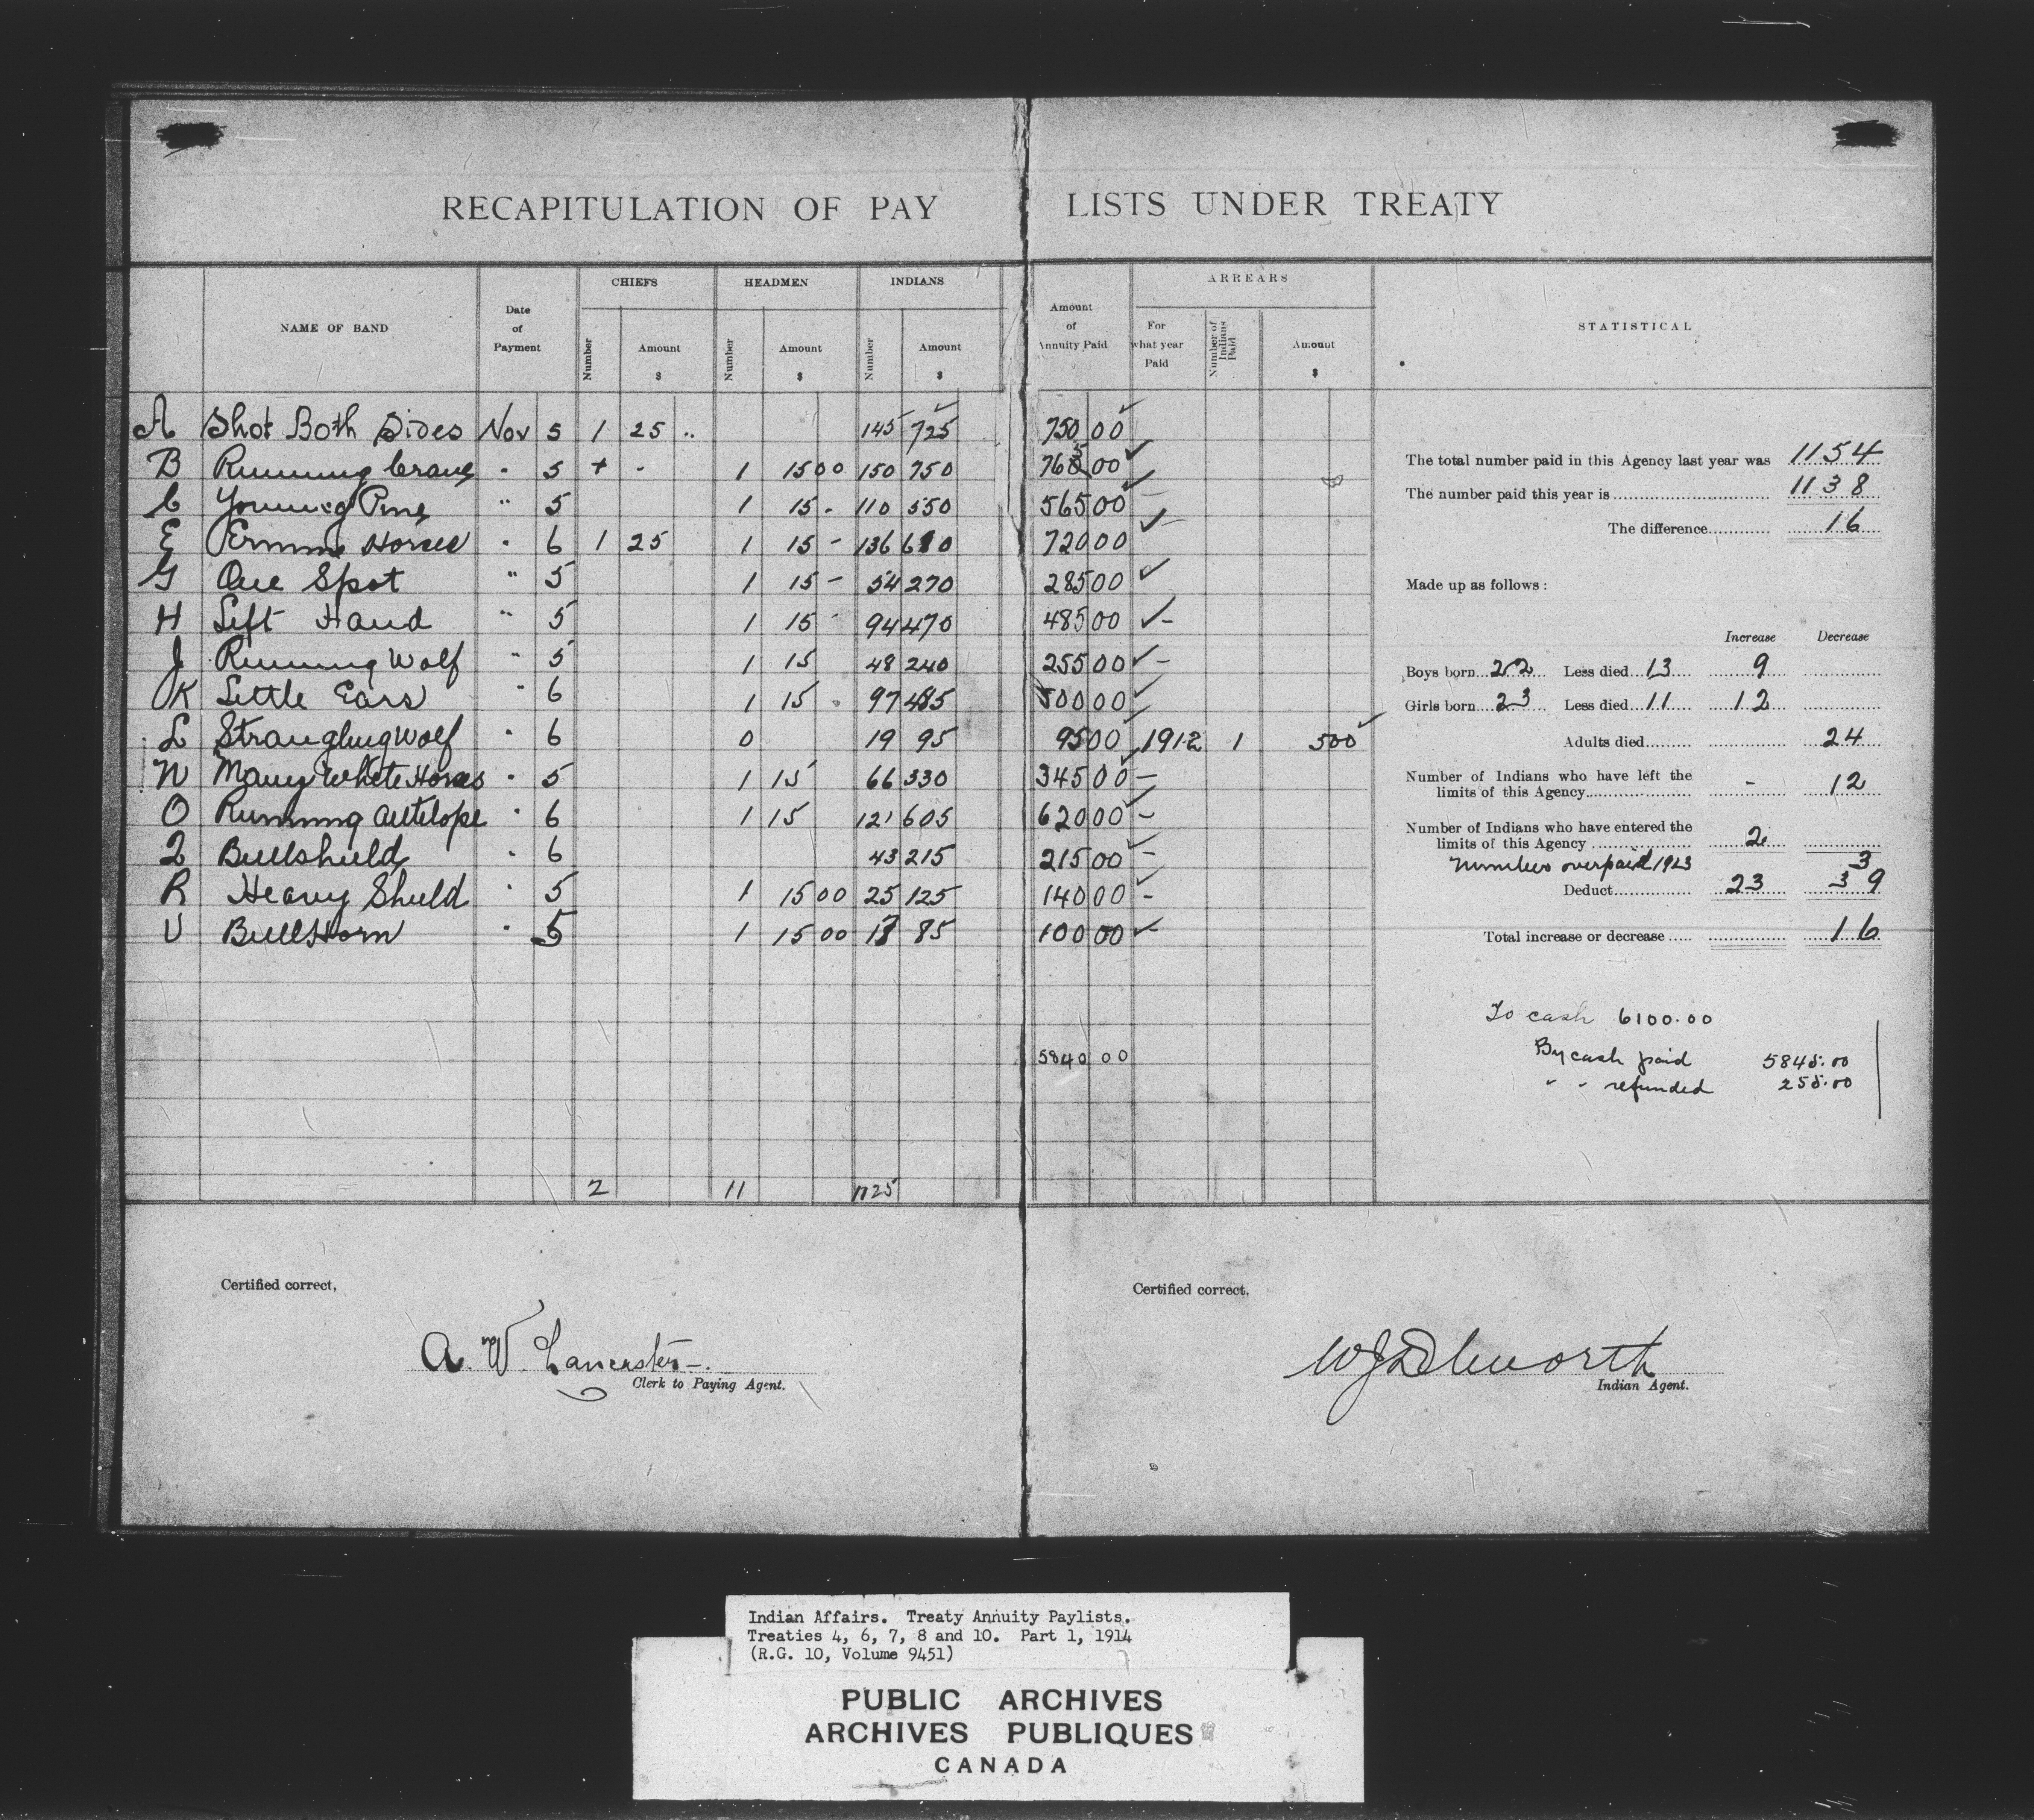 RECAPITULATION OF PAY LISTS UNDER TREATY
NAME OF BAND
Date of Payment
CHIEFS
Number
Amount $
HEADMEN
Number
Amount $
INDIANS
Number
Amount $
Amount of Annuity Paid
ARREARS
For what year Paid
Number of Indians Paid
Amount $
STATISTICAL
A Shot Both Sides Nov 5 1 25 .. 145 725 750 00
B Running Crane " 5 + - 1 15 00 150 750 765 00
C Young Pine " 5 1 15 - 110 550 565 00
E Ermine Horses " 6 1 25 1 15 - 136 680 720 00
G One Spot " 5 1 15 - 54 270 285 00
H Left Hand " 5 1 15 - 94 470 485 00
J Running Wolf " 5 1 15 48 240 255 00
K Little Ears " 6 1 15 - 97 485 500 00
L Strangling Wolf " 6 0 19 95 95 00 1912 1 5 00
N Many White Horses " 5 1 15 66 330 345 00
O Running Antelope " 6 1 15 121 605 620 00
Q Bullshield " 6 43 215 215 00
R Heavy Shield " 5 1 15 00 25 125 140 00
U Bull Horn " 5 1 15 00 17 85 100 00
5840 00
2 11 1125
The total number paid in this Agency last year was 1154
The number paid this year is 1138
The difference 16
Made up as follows:
Increase Decrease
Boys born 22 Less died 13 9
Girls born 23 Less died 11 12
Adults died 24
Number of Indians who have left the
limits of this Agency - 12
Number of Indians who have entered the
limits of this Agency 2
Number overpaid 1913 3
Deduct 23 39
Total increase or decrease 16
To cash 6100.00
By cash paid 5845.00
" " refunded 255.00
Certified correct,
A. W. Lancaster
Clerk to Paying Agent.
Certified correct,
W J Dilworth
Indian Agent.
Indian Affairs. Treaty Annuity Paylists.
Treaties 4, 6, 7, 8 and 10. Part 1, 1914
(R.G. 10, Volume 9451)
PUBLIC ARCHIVES
ARCHIVES PUBLIQUES
CANADA